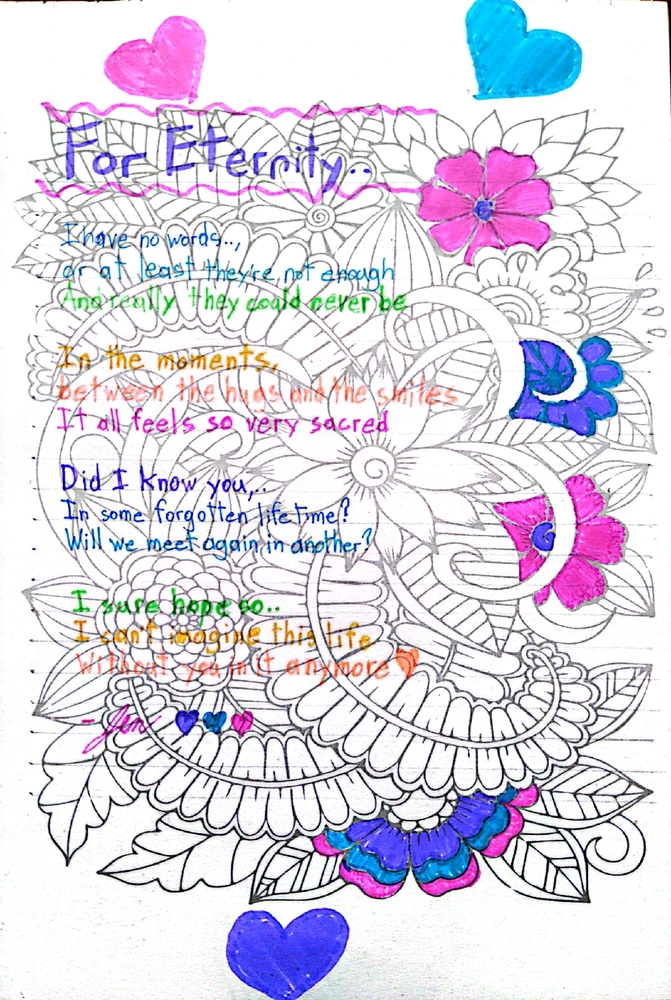 For Eternity..
I have no words..,
or at least they're not enough
And really they could never be
In the moments,
between the hugs and the smiles
It all feels so very sacred
Did I know you,..
In some forgotten lifetime?
Will we meet again in another?
I sure hope so..
I can't imagine this life
Without you in it anymore
- Jen